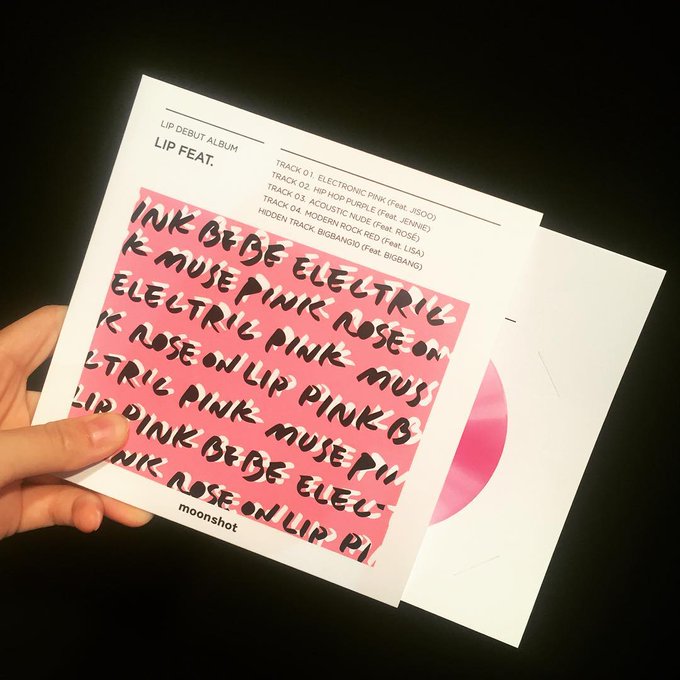 LIP DEBUT ALBUM
LIP FEAT.
TRACK 01. ELECTRONIC PINK (Feat. JISOO)
TRACK 02. HIP HOP PURPLE (Feat. JENNIE)
TRACK 03. ACOUSTIC NUDE (Feat. ROSÉ)
TRACK 04. MODERN ROCK RED (Feat. LISA)
HIDDEN TRACK. BIGBANG10 (Feat. BIGBANG)
INK BEBE ELECTRIC
K MUSE PINK ROSE ON
ELECTRIC PINK MUSE
K ROSE ON LIP PINK B
CTRIC PINK MUSE PIN
LIP PINK BEBE ELEC
INK ROSE ON LIP PI
moonshot